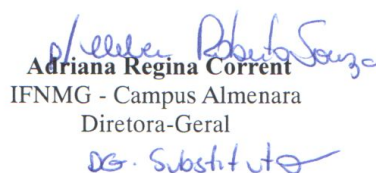 p/ Kleber Roberto Souza
Adriana Regina Corrent
IFNMG - Campus Almenara
Diretora-Geral
DG. Substituto